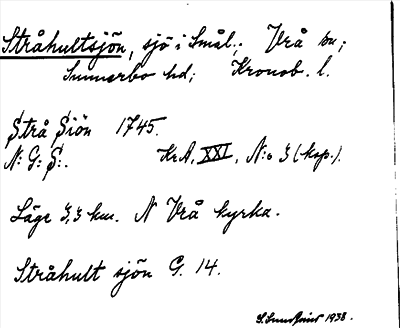 Stråhultsjön, sjö i Smål.; Vrå sn;
Sunnerbo hd; Kronob. l.
Strå Siön 1745.
N: G: S:. KrA, XXI, N:o 3 (kop.).
Läge 3,3 km. N Vrå kyrka.
Stråhult sjön G. 14.
1938.